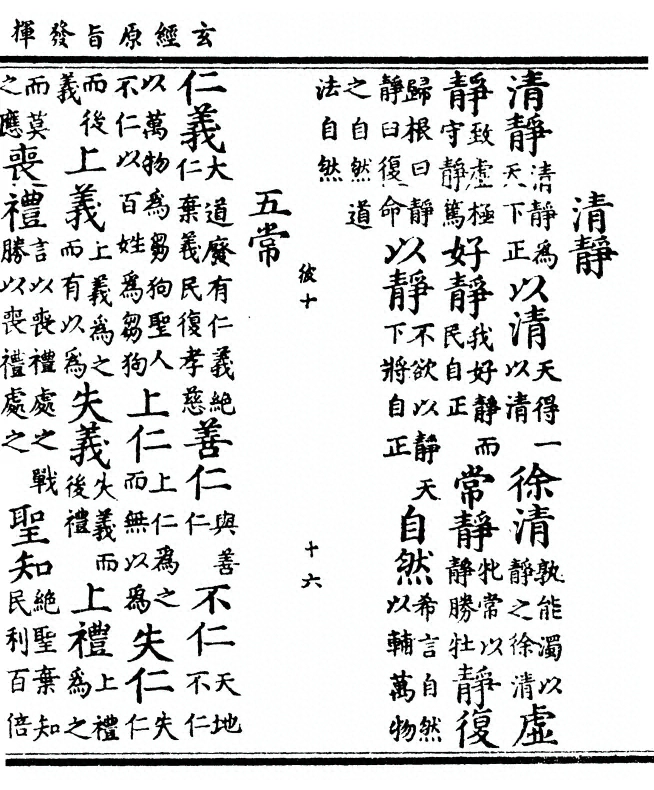 玄經原旨發揮
清靜
清靜清靜爲天下正以清天得一以清徐清孰能濁以靜之徐清虛
靜致虛極守靜篤好靜我好靜而民自正常靜牝常以靜勝牡靜復
歸根曰靜靜曰復命以靜不欲以靜天下將自正自然希言自然以輔萬物
之自然道法自然
彼十
十六
五常
仁義大道廢有仁義絕仁棄義民復孝慈善仁與善仁不仁天地不仁
以萬物爲芻狗聖人不仁以百姓爲芻狗上仁上仁爲之而無以爲失仁失仁
而後義上義上義爲之而有以爲失義失義而後禮上禮上禮爲之
而莫之應喪禮言以喪禮處之戰勝以喪禮處之聖知絕聖棄知民利百倍